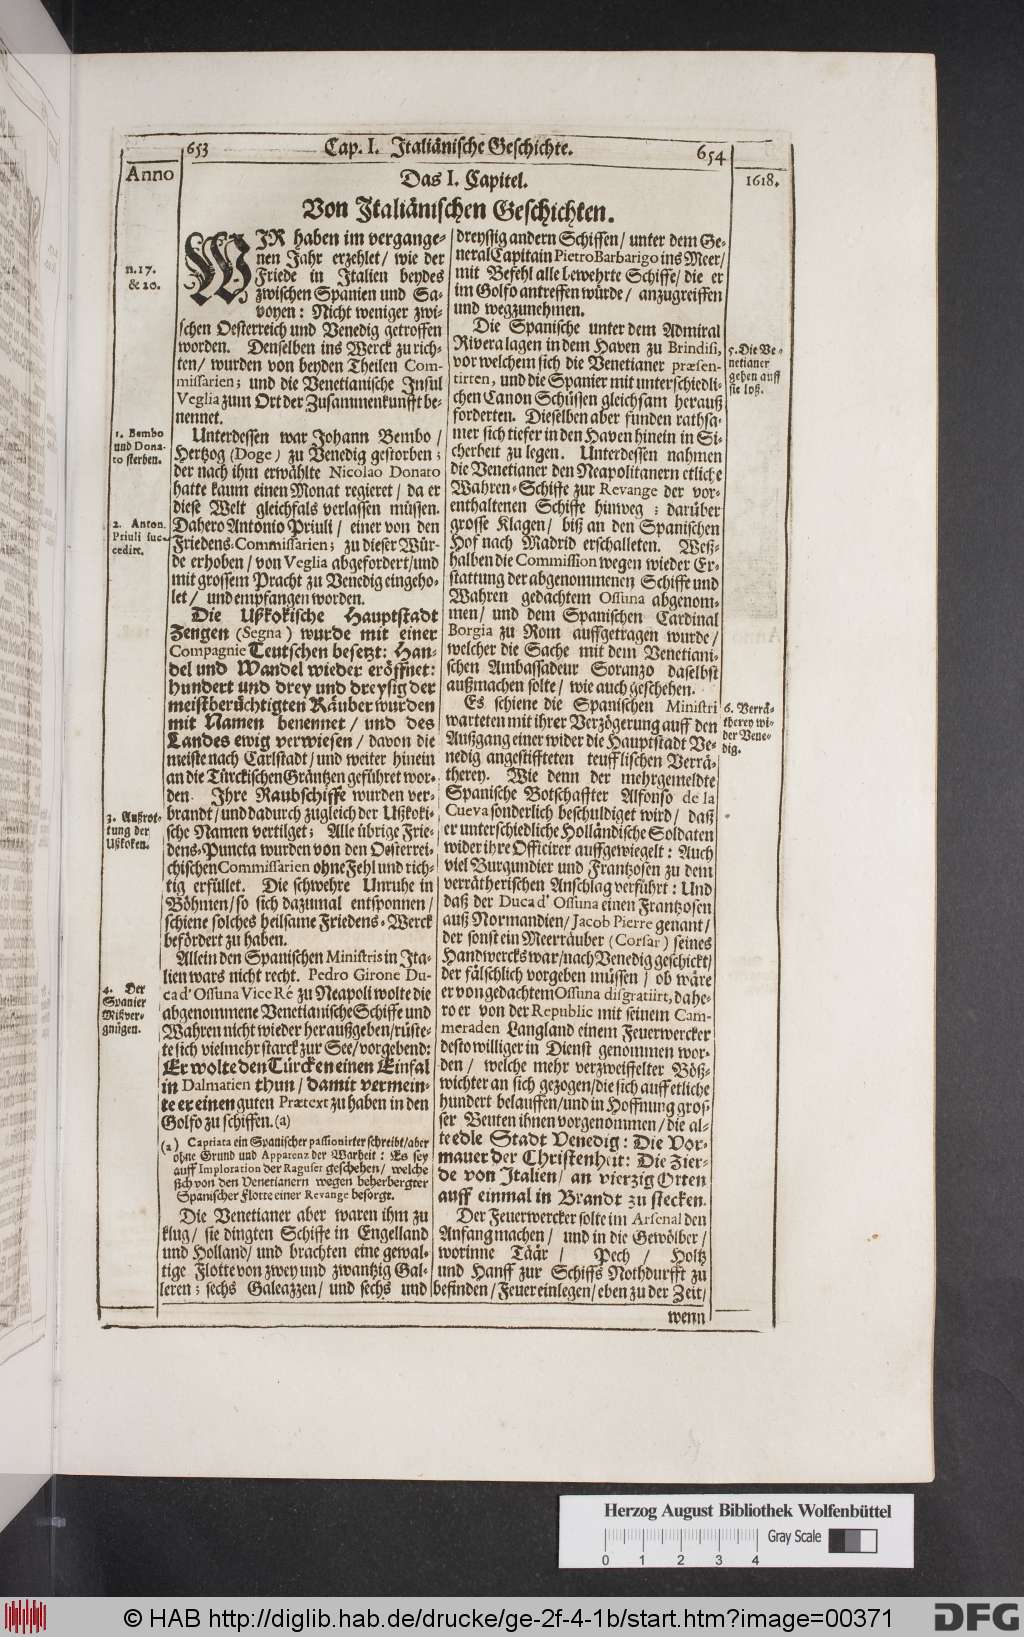 653
Cap. I. Italiänische Geschichte.
654
Anno
1618.
Das I. Capitel.
Von Italiänischen Geschichten.
n. 17.
& 20.
WIR haben im vergange-
nen Jahr erzehlet / wie der
Friede in Italien beydes
zwischen Spanien und Sa-
voyen: Nicht weniger zwi-
schen Oesterreich und Venedig getroffen
worden. Denselben ins Werck zu rich-
ten / wurden von beyden Theilen Com-
missarien; und die Venetianische Insul
Veglia zum Ort der Zusammenkunfft be-
nennet.
1. Bembo
und Dona-
to sterben.
Unterdessen war Johann Bembo /
Hertzog (Doge) zu Venedig gestorben;
der nach ihm erwählte Nicolao Donato
hatte kaum einen Monat regieret / da er
diese Welt gleichfals verlassen müssen.
2. Anton.
Priuli suc-
cedirt.
Dahero Antonio Priuli / einer von den
Friedens-Commissarien; zu dieser Wür-
de erhoben / von Veglia abgefordert / und
mit grossem Pracht zu Venedig eingeho-
let / und empfangen worden.
Die Ußkokische Hauptstadt
Zengen (Segna) wurde mit einer
Compagnie Teutschen besetzt: Han-
del und Wandel wieder eröffnet:
hundert und drey und dreysig der
meistberüchtigten Räuber wurden
mit Namen benennet / und des
Landes ewig verwiesen / davon die
meiste nach Carlstadt / und weiter hinein
an die Türckischen Gräntzen geführet wor-
den. Ihre Raubschiffe wurden ver-
3. Außrot-
tung der
Ußkoken.
brandt / und dadurch zugleich der Ußkoki-
sche Namen vertilget; Alle übrige Frie-
dens-Puncta wurden von den Oesterrei-
chischen Commissarien ohne Fehl und rich-
tig erfüllet. Die schwehre Unruhe in
Böhmen / so sich dazumal entsponnen /
schiene solches heilsame Friedens-Werck
befördert zu haben.
Allein den Spanischen Ministris in Ita-
lien wars nicht recht. Pedro Girone Du-
4. Der
Spanier
Mißver-
gnügen.
ca d' Ossuna Vice Ré zu Neapoli wolte die
abgenommene Venetianische Schiffe und
Wahren nicht wieder heraußgeben / rüste-
te sich vielmehr starck zur See / vorgebend:
Er wolte den Türcken einen Einfal
in Dalmatien thun / damit vermein-
te er einen guten Prætext zu haben in den
Golfo zu schiffen. (a)
(a) Capriata ein Spanischer passionirter schreibt / aber
ohne Grund und Apparenz der Warheit: Es sey
auff Imploration der Raguser geschehen / welche
sich von den Venetianern wegen beherbergter
Spanischer Flotte einer Revange besorgt.
Die Venetianer aber waren ihm zu
klug / sie dingten Schiffe in Engelland
und Holland / und brachten eine gewal-
tige Flotte von zwey und zwantzig Gal-
leren; sechs Galeazzen / und sechs und
dreyssig andern Schiffen / unter dem Ge-
neral Capitain Pietro Barbarigo ins Meer /
mit Befehl alle bewehrte Schiffe / die er
im Golfo antreffen würde / anzugreiffen
und wegzunehmen.
Die Spanische unter dem Admiral
Rivera lagen in dem Haven zu Brindisi,
5. Die Ve-
netianer
gehen auff
sie loß.
vor welchem sich die Venetianer præsen-
tirten, und die Spanier mit unterschiedli-
chen Canon Schüssen gleichsam herauß
forderten. Dieselben aber funden rathsa-
mer sich tiefer in den Haven hinein in Si-
cherheit zu legen. Unterdessen nahmen
die Venetianer den Neapolitanern etliche
Wahren-Schiffe zur Revange der vor-
enthaltenen Schiffe hinweg; darüber
grosse Klagen / biß an den Spanischen
Hof nach Madrid erschalleten. Weß-
halben die Commission wegen wieder Er-
stattung der abgenommenen Schiffe und
Wahren gedachtem Ossuna abgenom-
men / und dem Spanischen Cardinal
Borgia zu Rom auffgetragen wurde /
welcher die Sache mit dem Venetiani-
schen Ambassadeur Soranzo daselbst
außmachen solte / wie auch geschehen.
Es schiene die Spanischen Ministri
6. Verrä-
therey wi-
der Vene-
dig.
warteten mit ihrer Verzögerung auff den
Außgang einer wider die Hauptstadt Ve-
nedig angestiffteten teufflischen Verrä-
therey. Wie denn der mehrgemeldte
Spanische Botschaffter Alfonso de la
Cueva sonderlich beschuldiget wird / daß
er unterschiedliche Holländische Soldaten
wider ihre Officirer auffgewiegelt: Auch
viel Burgundier und Frantzosen zu dem
verrätherischen Anschlag verführt: Und
daß der Duca d' Ossuna einen Frantzosen
auß Normandien / Jacob Pierre genant /
der sonst ein Meerräuber (Corsar) seines
Handwercks war / nach Venedig geschickt /
der fälschlich vorgeben müssen / ob wäre
er von gedachtem Ossuna disgratiirt, dahe-
ro er von der Republic mit seinem Cam-
meraden Langland einem Feuerwercker
desto williger in Dienst genommen wor-
den / welche mehr verzweiffelter Böß-
wichter an sich gezogen / die sich auff etliche
hundert belauffen / und in Hoffnung gros-
ser Beuten ihnen vorgenommen / die al-
te edle Stadt Venedig: Die Vor-
mauer der Christenheit: Die Zier-
de von Italien / an vierzig Orten
auff einmal in Brandt zu stecken.
Der Feuerwercker solte im Arsenal den
Anfang machen / und in die Gewölber /
worinne Täär / Pech / Holtz
und Hanff zur Schiffs Nothdurfft zu
befinden / Feuer einlegen / eben zu der Zeit /
wenn
Herzog August Bibliothek Wolfenbüttel
Gray Scale
0 1 2 3 4
© HAB http://diglib.hab.de/drucke/ge-2f-4-1b/start.htm?image=00371
DFG